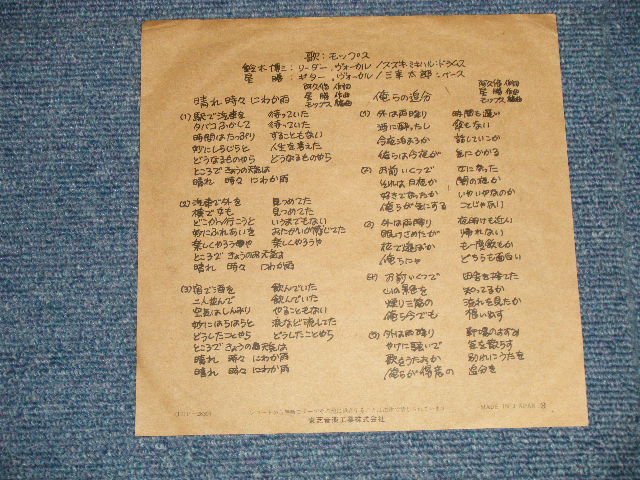 歌：モップス
鈴木博三：リーダー、ヴォーカル／スズキ・ミキハル：ドラムス
星 勝：ギター、ヴォーカル／三幸太郎：ベース
晴れ 時々 にわか雨
阿久悠 作詞
星 勝 作曲
モップス 編曲
(1) 駅で汽車を 待っていた
タバコふかして 待っていた
時間はたっぷり することもない
妙にしらじらと 人生を考えた
どうなるものやら どうなるものやら
ところできょうの天気は
晴れ 時々 にわか雨
(2) 汽車で外を 見つめてた
横で女も 見つめてた
どこかへ行こうと いうまでもない
妙にふれあいを おたがいが感じてた
楽しくやろうや 楽しくやろうや
ところできょうのお天気は
晴れ 時々 にわか雨
(3) 宿で酒を 飲んでいた
二人並んで 飲んでいた
空気はしんみり やることもない
妙にはらはらと 涙など流してた
どうしたことやら どうしたことやら
ところできょうのお天気は
晴れ 時々 にわか雨
晴れ 時々 にわか雨
俺らの追分
阿久悠 作詞
星 勝 作曲
モップス 編曲
(1) 外は雨降り 時間も遅い
酒に酔ったし 飯もない
今夜泊まるか 話していこか
俺らは今夜が 気にかかる
(2) お前いくつで 女になった
それは月夜か 闇の夜か
好きであったか いやいやなのか
俺らが気にする ことじゃない
(3) 外は雨降り 夜明けも近い
眠けさめたが 帰れない
花で遊ぼか も一度飲もか
俺らにゃ どちらも面白い
(4) お前いくつで 田舎を捨てた
山の景色を 知ってるか
煙り三筋の 流れを見たか
俺ら今でも 思い出す
(5) 外は雨降り
やけに騒いで
歌をうたおか 別れにうたを
俺らが得意の 追分を
MADE IN JAPAN
東芝音楽工業株式会社